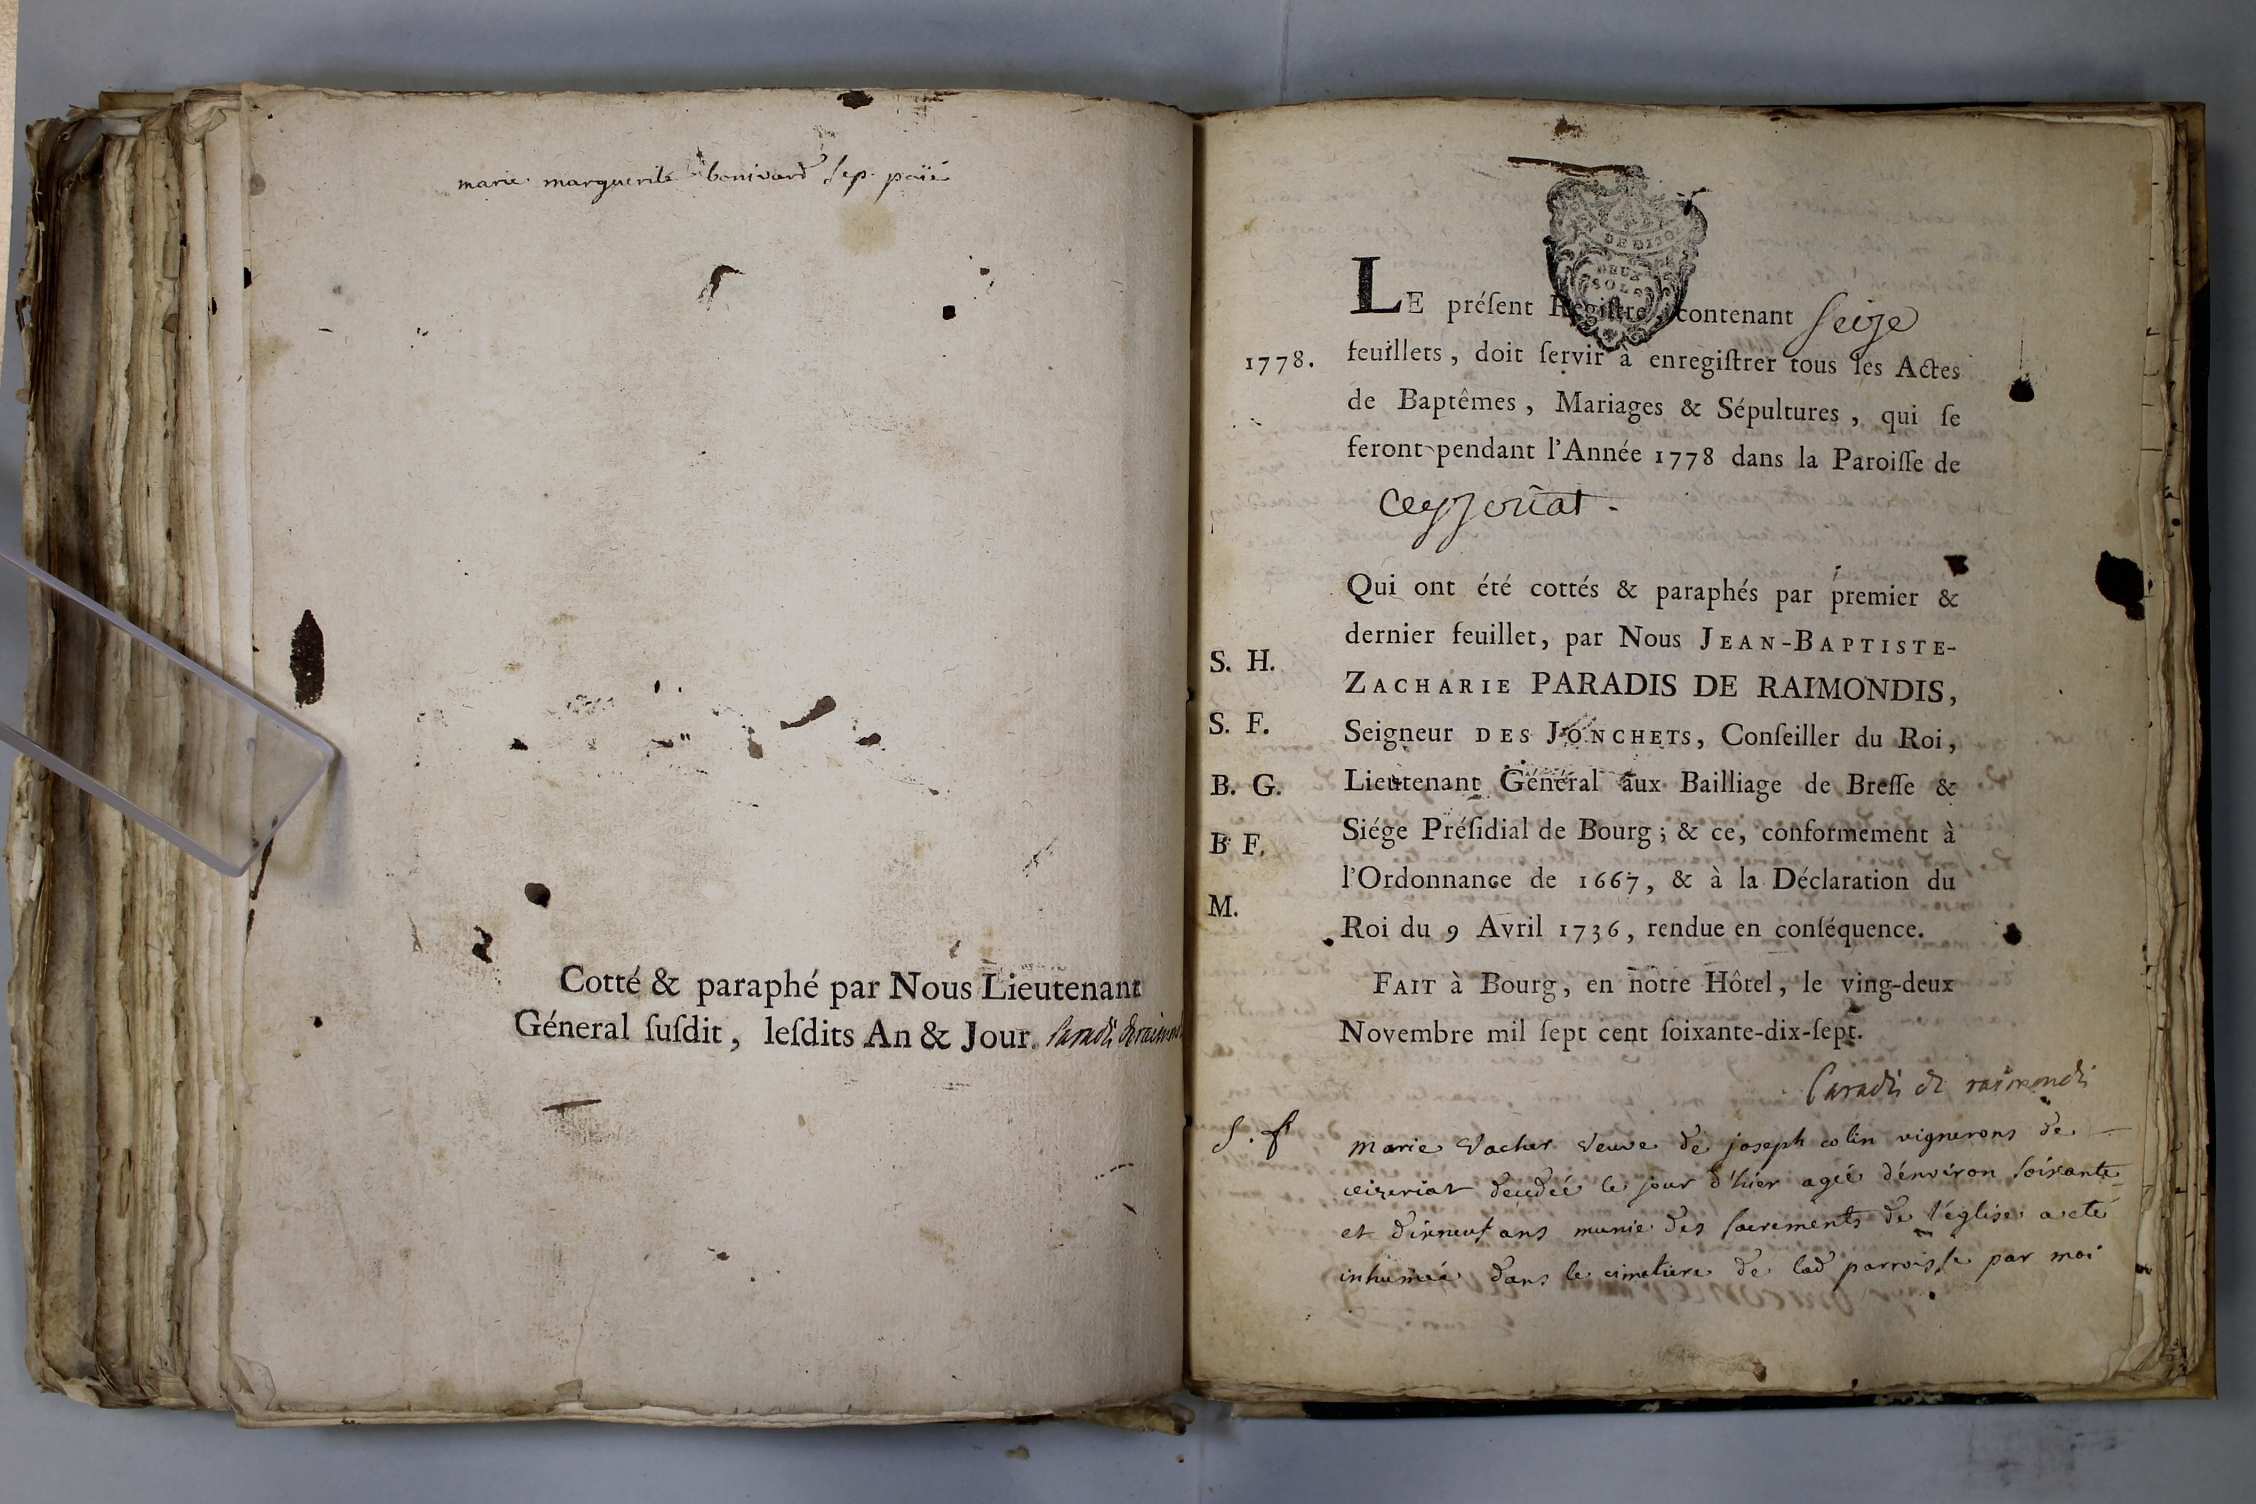 marie marguerite bonivard sep. païé
Cotté & paraphé par Nous Lieutenant
Géneral ſuſdit, leſdits An & Jour. Paradis de raimondi
DE DIJON
DEUX
SOLS
LE préſent Regiſtre, contenant ſeize
1778. feuillets, doit ſervir à enregiſtrer tous les Actes
de Baptêmes, Mariages & Sépultures, qui ſe
feront pendant l'Année 1778 dans la Paroiſſe de
Ceyzeriat.
Qui ont été cottés & paraphés par premier &
dernier feuillet, par Nous JEAN-BAPTISTE-
S. H.
ZACHARIE PARADIS DE RAIMONDIS,
S. F. Seigneur DES JONCHETS, Conſeiller du Roi,
B. G. Lieutenant Général aux Bailliage de Breſſe &
Siége Préſidial de Bourg; & ce, conformement à
B F.
l'Ordonnance de 1667, & à la Déclaration du
M.
Roi du 9 Avril 1736, rendue en conſéquence.
FAIT à Bourg, en notre Hôtel, le ving-deux
Novembre mil ſept cent ſoixante-dix-ſept.
Paradis de raimondi
S. f marie vacher veuve de joseph colin vignerons de
ceizeriat decedeé le jour d'hier ageé d'énviron soixante
et dixneuf ans munie des sacrements de l'église a eté
inhumeé dans le cimetiere de lad parroisse par moi